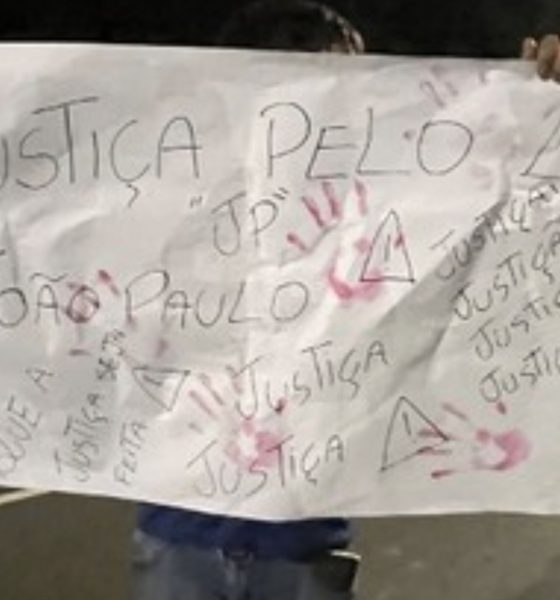 JUSTIÇA PELO
"JP"
JOÃO PAULO
JUSTIÇA
JUSTIÇA
JUSTIÇA
JUSTIÇA
JUSTIÇA
JUSTIÇA
QUE A
JUSTIÇA SEJA
FEITA